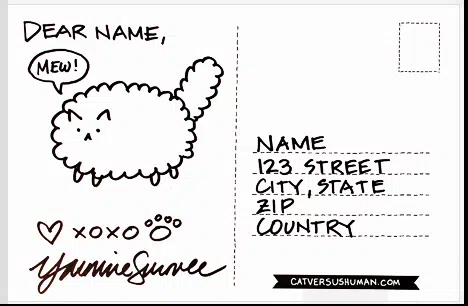 DEAR NAME,
MEW!
XOXO
Yasmine Surovec
NAME
123 STREET
CITY, STATE
ZIP
COUNTRY
CATVERSUSHUMAN.COM